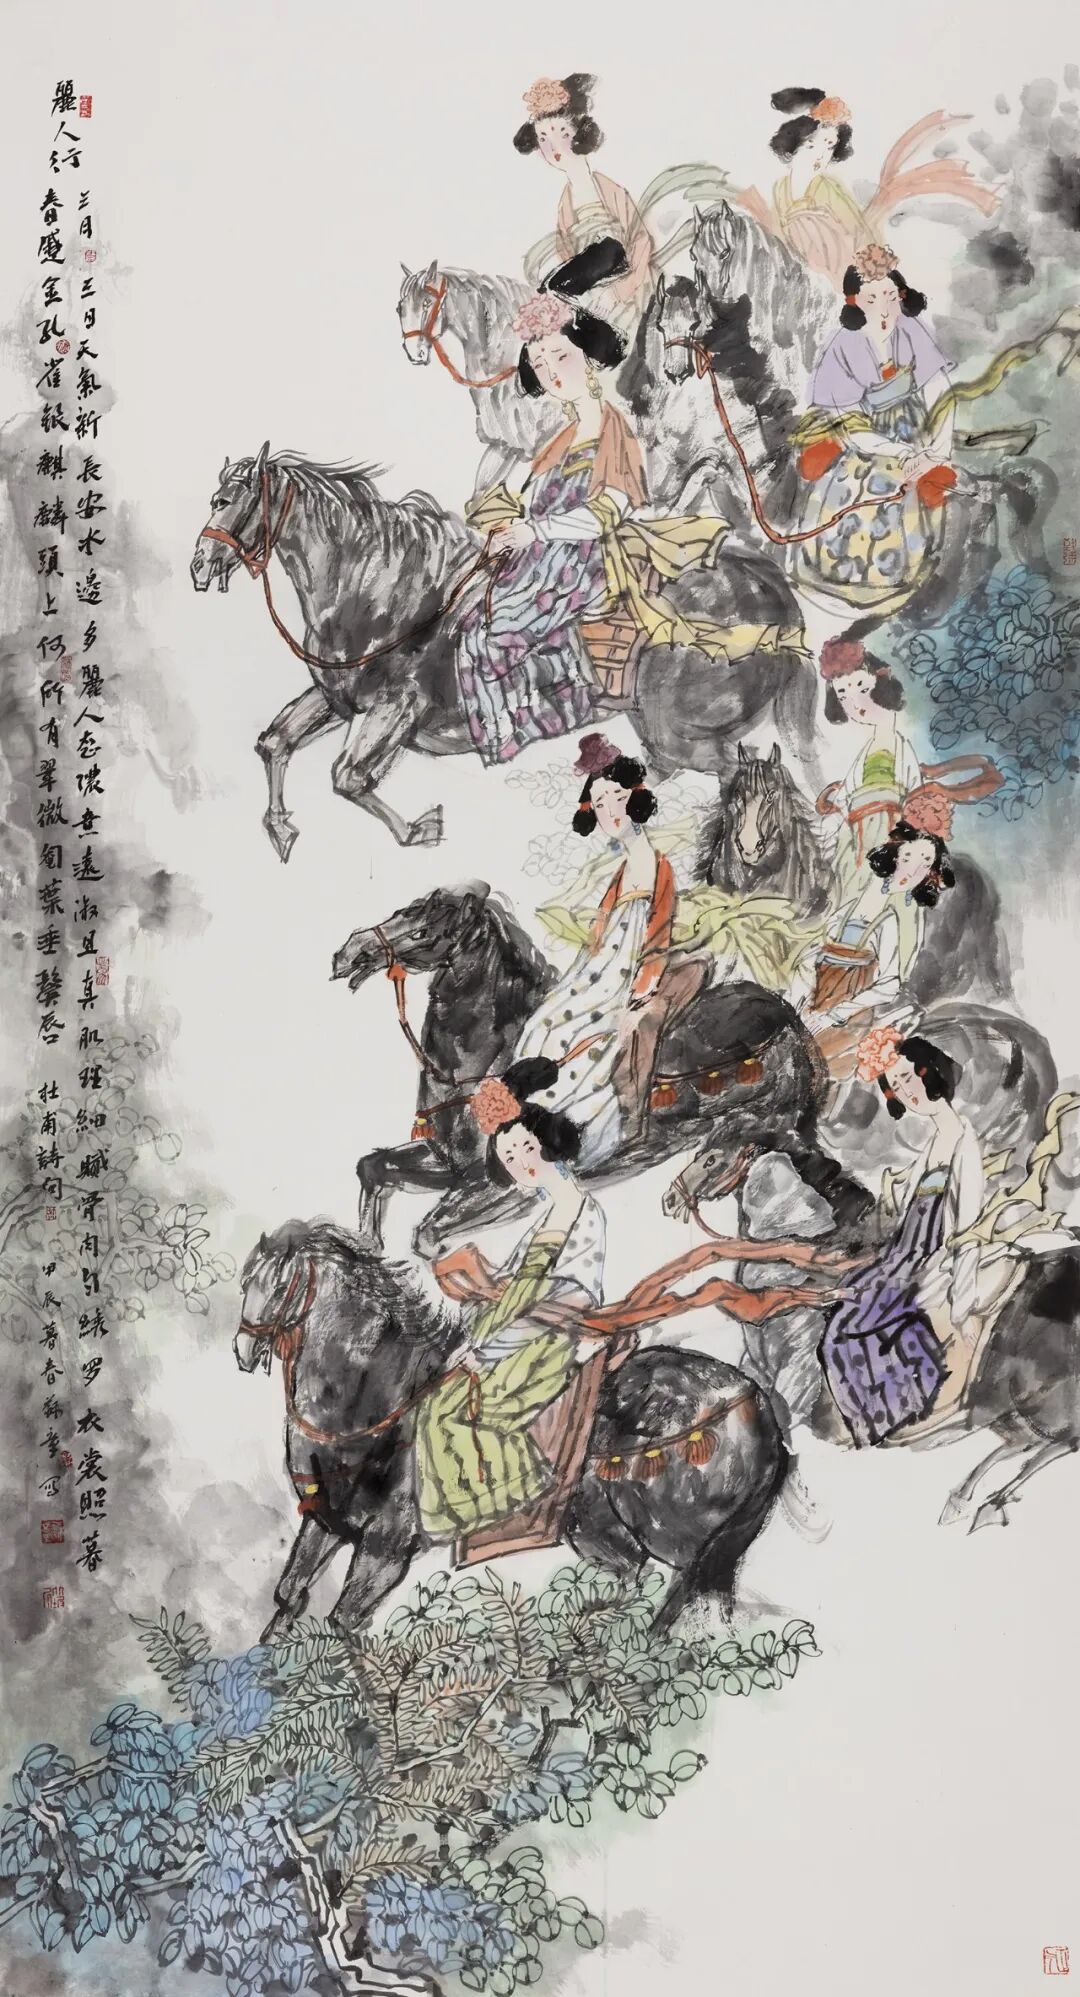 麗人行
三月三日天氣新長安水邊多麗人態濃意遠淑且真肌理細膩骨肉勻綉罗衣裳照暮
春蹙金孔雀銀麒麟頭上何所有翠微匎葉垂鬢唇 杜甫詩句 甲辰暮春 写